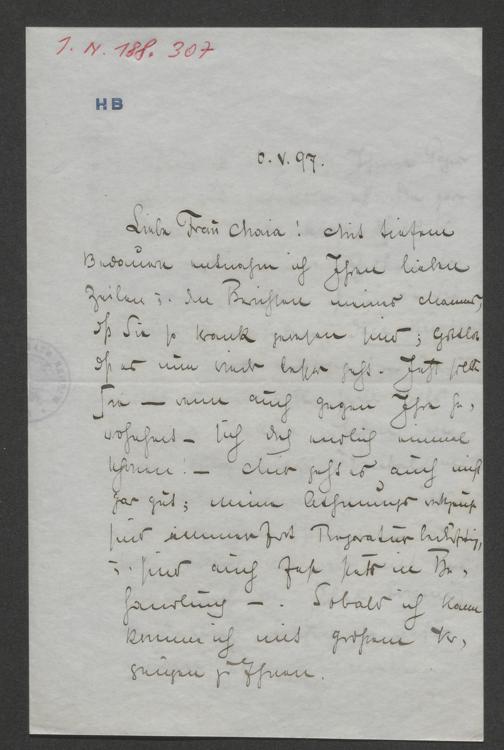 I. N. 188.307
HB
6.V.97.
Liebe Frau Maria! Mit tiefem
Bedauern entnahm ich Ihren lieben
Zeilen u. den Berichten meines Mannes,
dß Sie so krank gewesen sind; Gottlob
dß es nun wieder besser geht. Jetzt sollten
Sie — wenn auch gegen Ihre Ge-
wohnheit — sich doch endlich einmal
schonen! — Mir geht es auch nicht
gar gut; meine Athmungs
sind immerfort Reparaturbedürftig,
u. sind auch fast stets in Be-
handlung —. Sobald ich kann
komme ich mit großem Ver-
gnügen zu Ihnen.